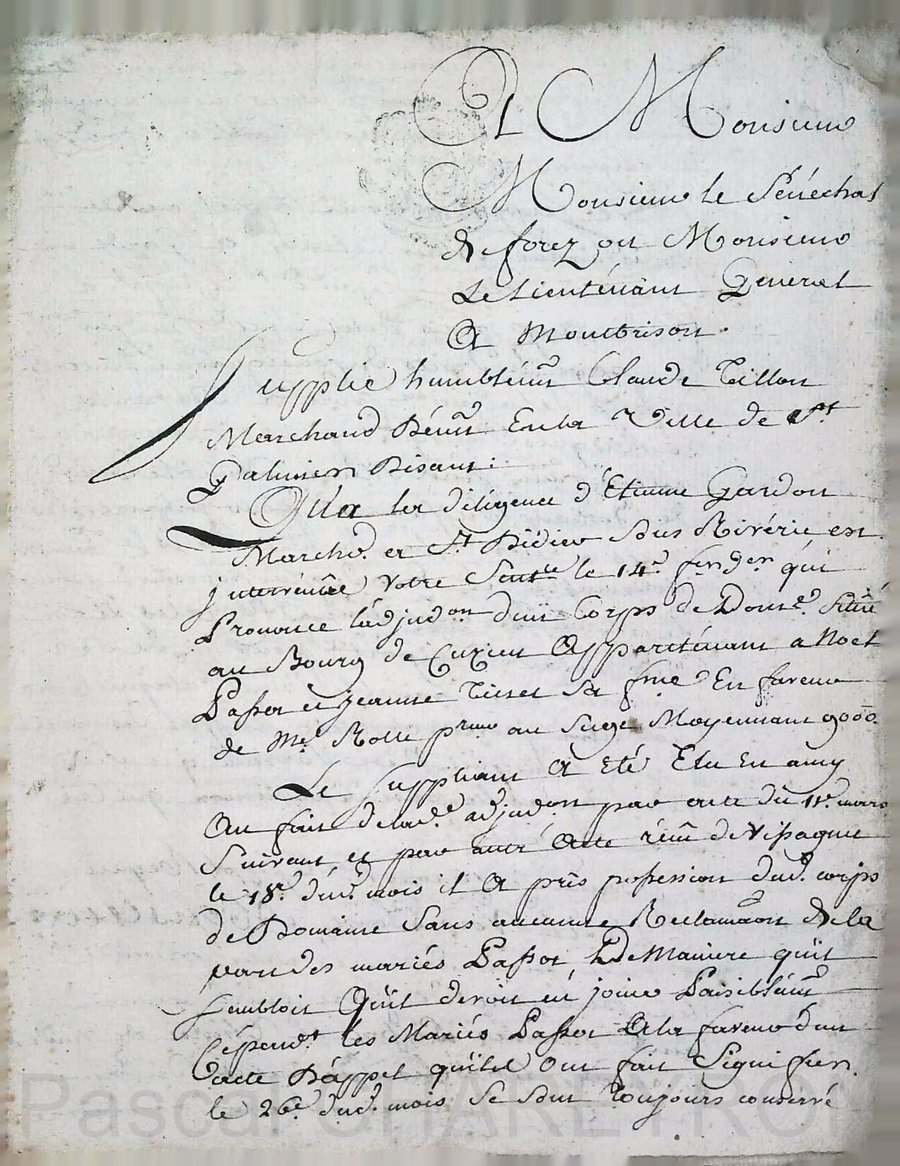 A Monsieur
Monsieur le Sénéchal
de forez ou Monsieur
Le Lieutenant Géneral
A Montbrison.
Supplie humblem.t Claude Tillon
Marchand Demt En la Ville de St
Galmier Disant:
Qu'a la diligence d'Etienne Gardon
Marchd. et St Didier sous Rivérie est
intervenue Votre Sentce le 14e. qui
Prononce l'adjudon d'un Corps de Dome. Situé
au Bourg de Cuzieu Appartenant a Noel
Passot et Jeanne sa fme En faveur
de Me. Rolle preur au Siege Moyennant 9000
Le Suppliant A Eté Elu En amy
Au fait de lade. adjudon par acte du 11e. mars
Suivant et par autre Acte de
le 18e. dud. mois il A pris possession dud. corps
de Domaine Sans aucune Reclamaon de la
part des mariés Passot De Maniere qu'il
sembloit Qu'il devoit en jouir Paisiblemt
Cépandt. les Mariés Passot A la faveur d'un
acte D'appel qu'ils ont fait Signifier
le 26e. dud. mois se sont toujours conservé
Pascal CHAREYRON